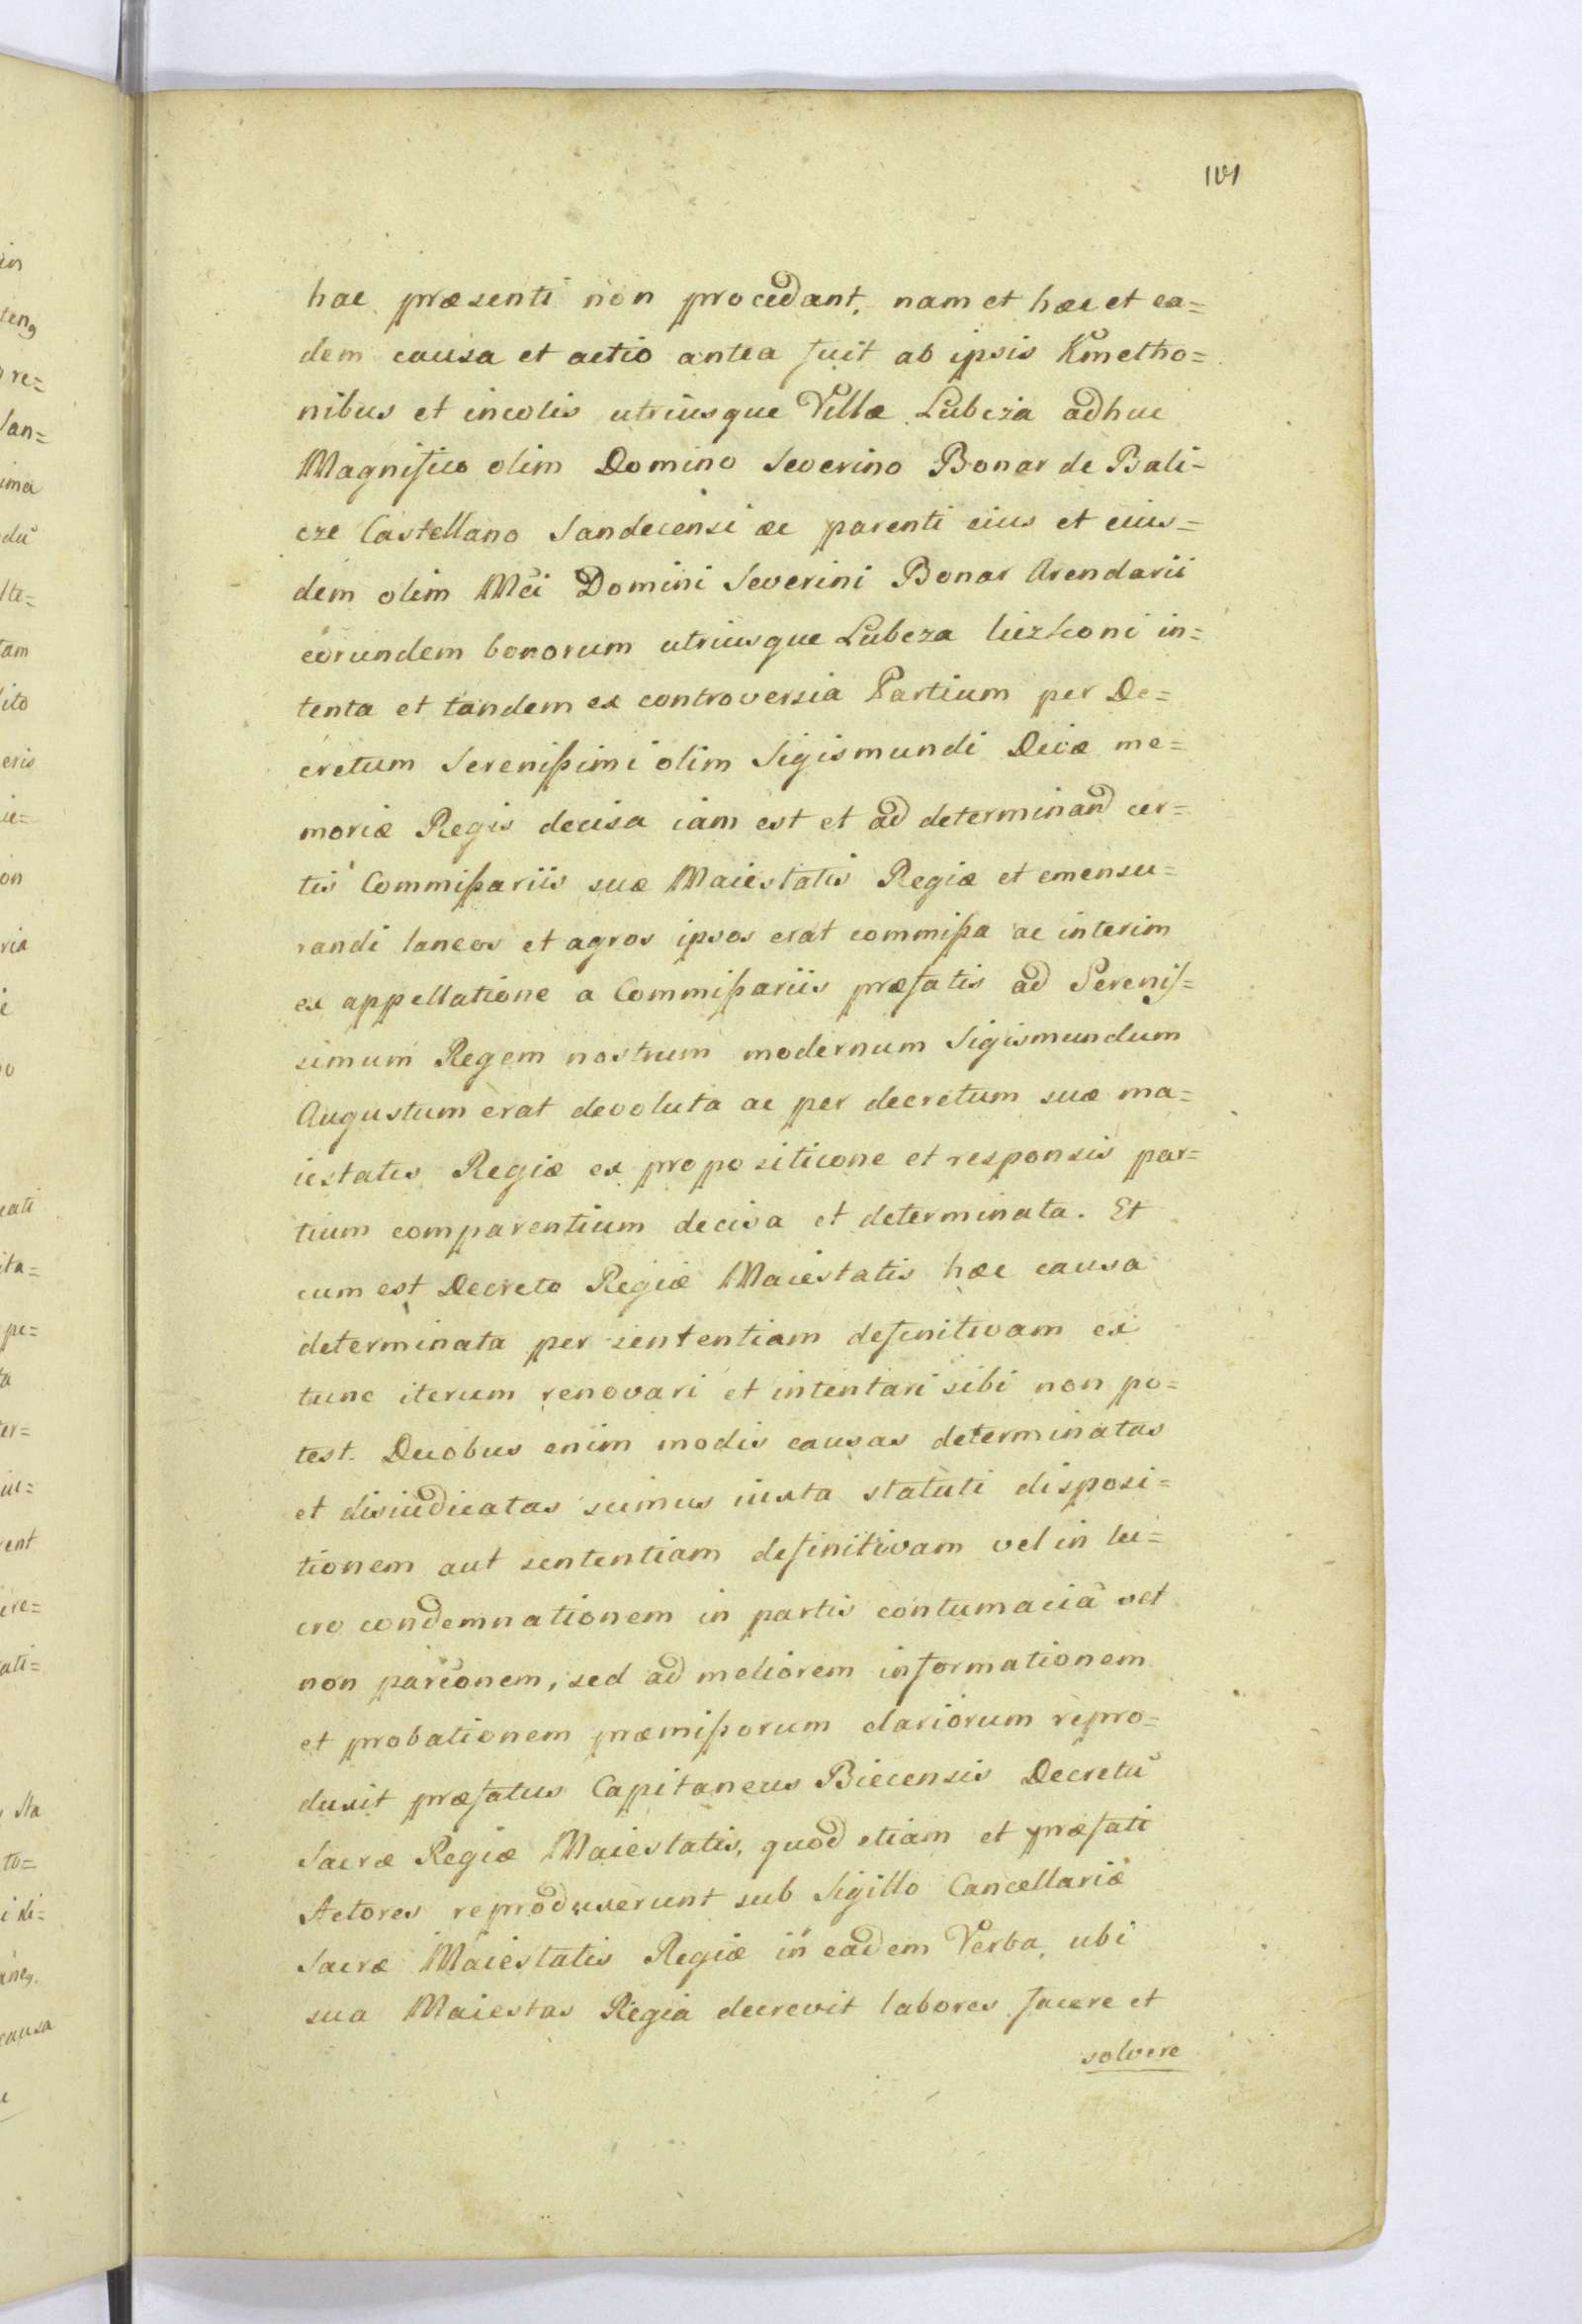 101
hac præsenti non procedant, nam et hæc et ea=
dem causa et actio antea fuit ab ipsis Kmetho=
nibus et incolis utriusque Villæ Lubcza adhuc
Magnifico olim Domino Severino Bonar de Bali=
cze Castellano Sandecensi ac parenti eius et eius=
dem olim Mci Domini Severini Bonar Arendarii
eorundem bonorum utriusque Lubcza in=
tenta et tandem ex controversia Partium per De=
cretum Serenißimi olim Sigismundi Divæ me=
moriæ Regis decisa iam est et ad determinand cer=
tis Commißariis suæ Maiestatis Regiæ et emensu=
randi laneos et agros ipsos erat commißa ac interim
ex appellatione a Commißariis præfatis ad Serenis=
simum Regem nostrum modernum Sigismundum
Augustum erat devoluta ac per decretum suæ ma=
iestatis Regiæ ex propositicone et responsis par=
tium comparentium decisa et determinata. Et
cum est Decreto Regiæ Maiestatis hæc causa
determinata per sententiam definitivam ex
tunc iterum renovari et intentari sibi non po=
test. Duobus enim modis causas determinatas
et disiudicatas scimus iuxta statuti disposi=
tionem aut sententiam definitivam vel in lu=
cro condemnationem in partis contumacia vel
non paricionem, sed ad meliorem informationem
et probationem præmißorum clariorum repro=
duxit præfatus Capitaneus Biecensis Decretū
Sacræ Regiæ Maiestatis, quod etiam et præfati
Actores reproduxerunt sub Sigillo Cancellariæ
Sacræ Maiestatis Regiæ in eadem Verba, ubi
sua Maiestas Regia decrevit labores facere et
solvere